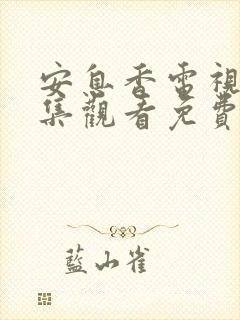 安息香電視
集觀看免費
藍山雀